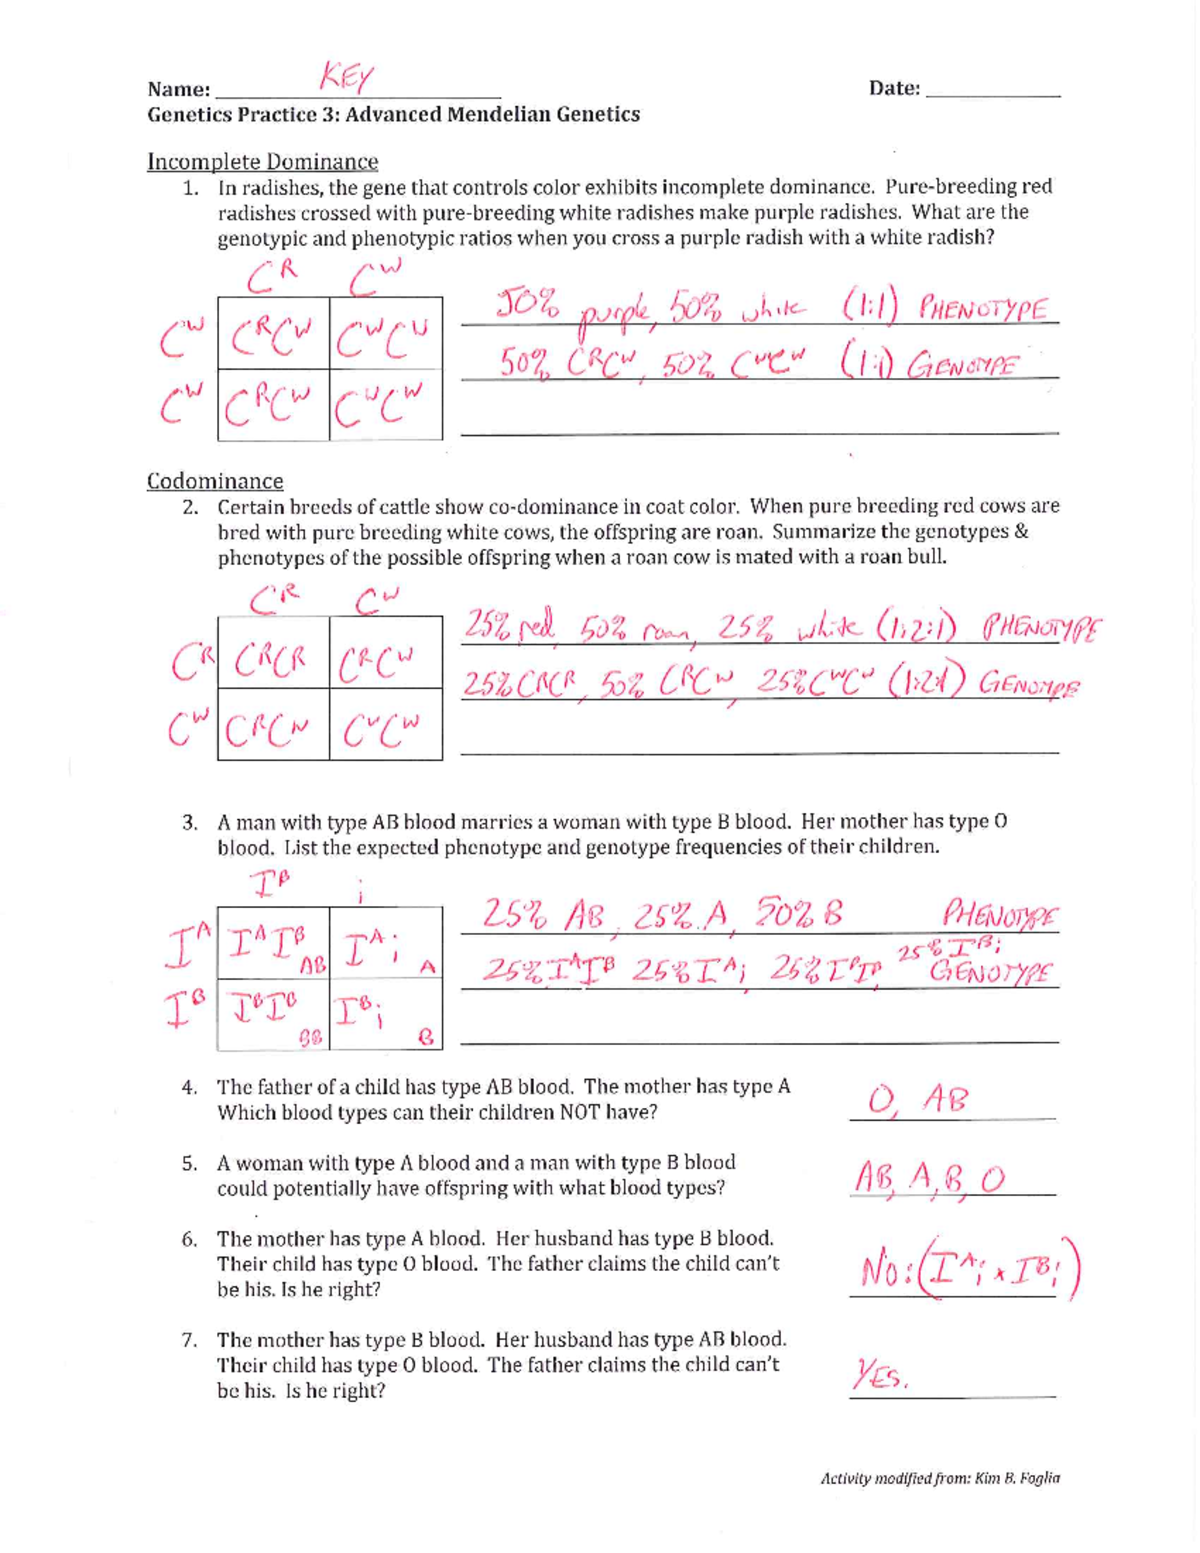 Name: KEY Date:
Genetics Practice 3: Advanced Mendelian Genetics
Incomplete Dominance
1. In radishes, the gene that controls color exhibits incomplete dominance. Pure-breeding red
radishes crossed with pure-breeding white radishes make purple radishes. What are the
genotypic and phenotypic ratios when you cross a purple radish with a white radish?
C^R C^W
C^W C^R C^W C^W C^W 50% purple, 50% white (1:1) PHENOTYPE
50% C^R C^W, 50% C^W C^W (1:1) GENOTYPE
C^W C^R C^W C^W C^W
Codominance
2. Certain breeds of cattle show co-dominance in coat color. When pure breeding red cows are
bred with pure breeding white cows, the offspring are roan. Summarize the genotypes &
phenotypes of the possible offspring when a roan cow is mated with a roan bull.
C^R C^W
25% red, 50% roan, 25% white (1:2:1) PHENOTYPE
C^R C^R C^R C^R C^W 25% C^R C^R, 50% C^R C^W, 25% C^W C^W (1:2:1) GENOTYPE
C^W C^R C^W C^W C^W
3. A man with type AB blood marries a woman with type B blood. Her mother has type O
blood. List the expected phenotype and genotype frequencies of their children.
I^B i
25% AB, 25% A, 50% B PHENOTYPE
I^A I^A I^B AB I^A i A 25% I^A I^B 25% I^A i, 25% I^B I^B, 25% I^B i GENOTYPE
I^B I^B I^B BB I^B i B
4. The father of a child has type AB blood. The mother has type A
Which blood types can their children NOT have? O, AB
5. A woman with type A blood and a man with type B blood
could potentially have offspring with what blood types? AB, A, B, O
6. The mother has type A blood. Her husband has type B blood.
Their child has type O blood. The father claims the child can't
be his. Is he right? No: (I^A i x I^B i)
7. The mother has type B blood. Her husband has type AB blood.
Their child has type O blood. The father claims the child can't
be his. Is he right? YES.
Activity modified from: Kim B. Foglia